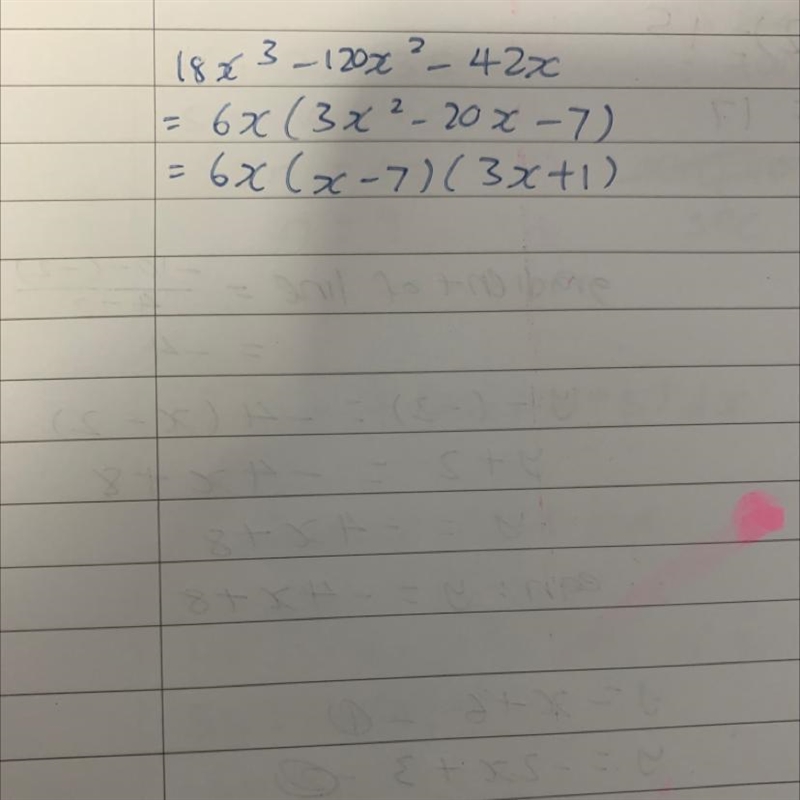 18x³ - 120x² - 42x
= 6x(3x² - 20x - 7)
= 6x(x - 7)(3x + 1)